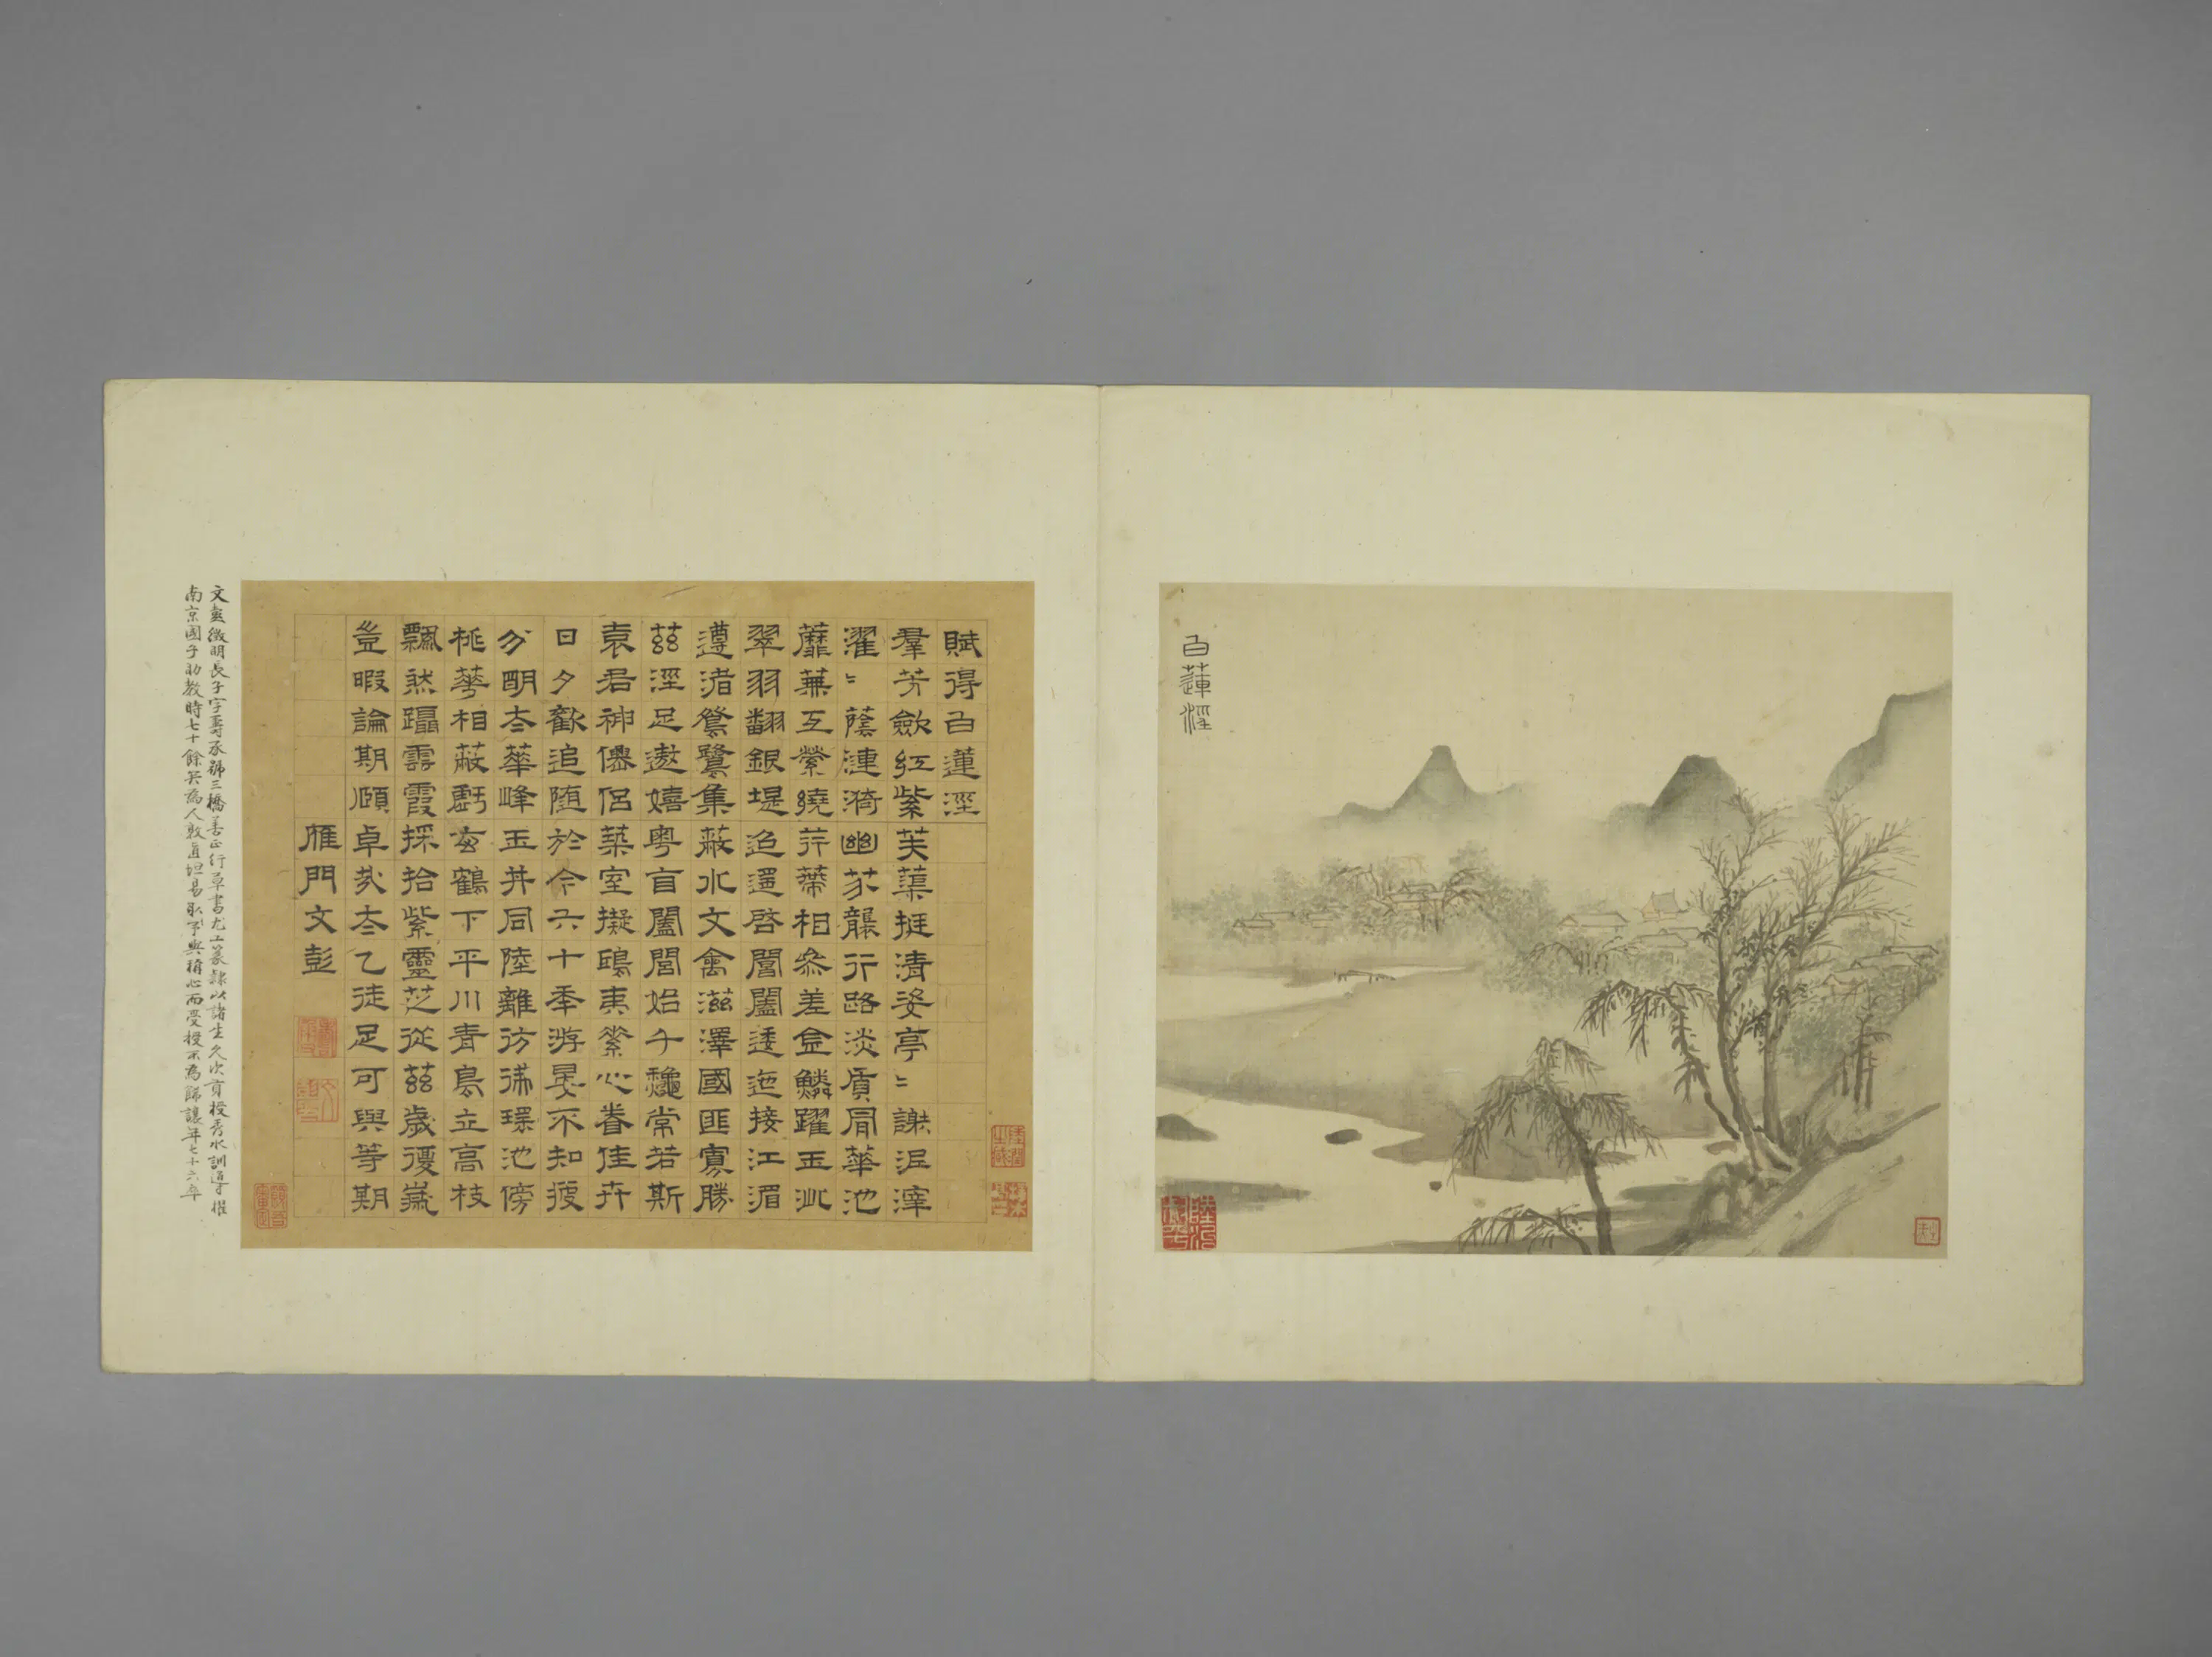 白蓮涇
賦得白蓮涇
羣芳斂紅紫芙蕖挺清姿亭〻謝泥滓
濯〻蔭漣漪幽芬襲行路淡質冒華池
蘼蕪互縈繞荇帶相參差金鱗躍玉沘
翠羽翻銀堤迢遥啓閶闔逶迤接江湄
遵渚鴛鷺集蔽水文禽滋澤國匪寡勝
茲涇足遨嬉粵盲闔閭始千龝常若斯
袁君神僊侶築室擬鴟夷縈心眷佳卉
日夕歡追随於今六十秊游晏不知疲
分明太華峰玉井同陸離彷彿環池傍
桃華相蔽虧玄鶴下平川青鳥立高枝
飄然躡雲霞採拾紫靈芝從茲歲復歲
豈暇論期頤卓哉太乙徒足可與等期
雁門文彭
文彭徵明長子字壽承號三橋善正行草書尤工篆隸以諸生久次貢授秀水訓導擢
南京國子助教時七十餘矣為人敦直坦易取予與稱心而受授不為歸讓年七十六卒